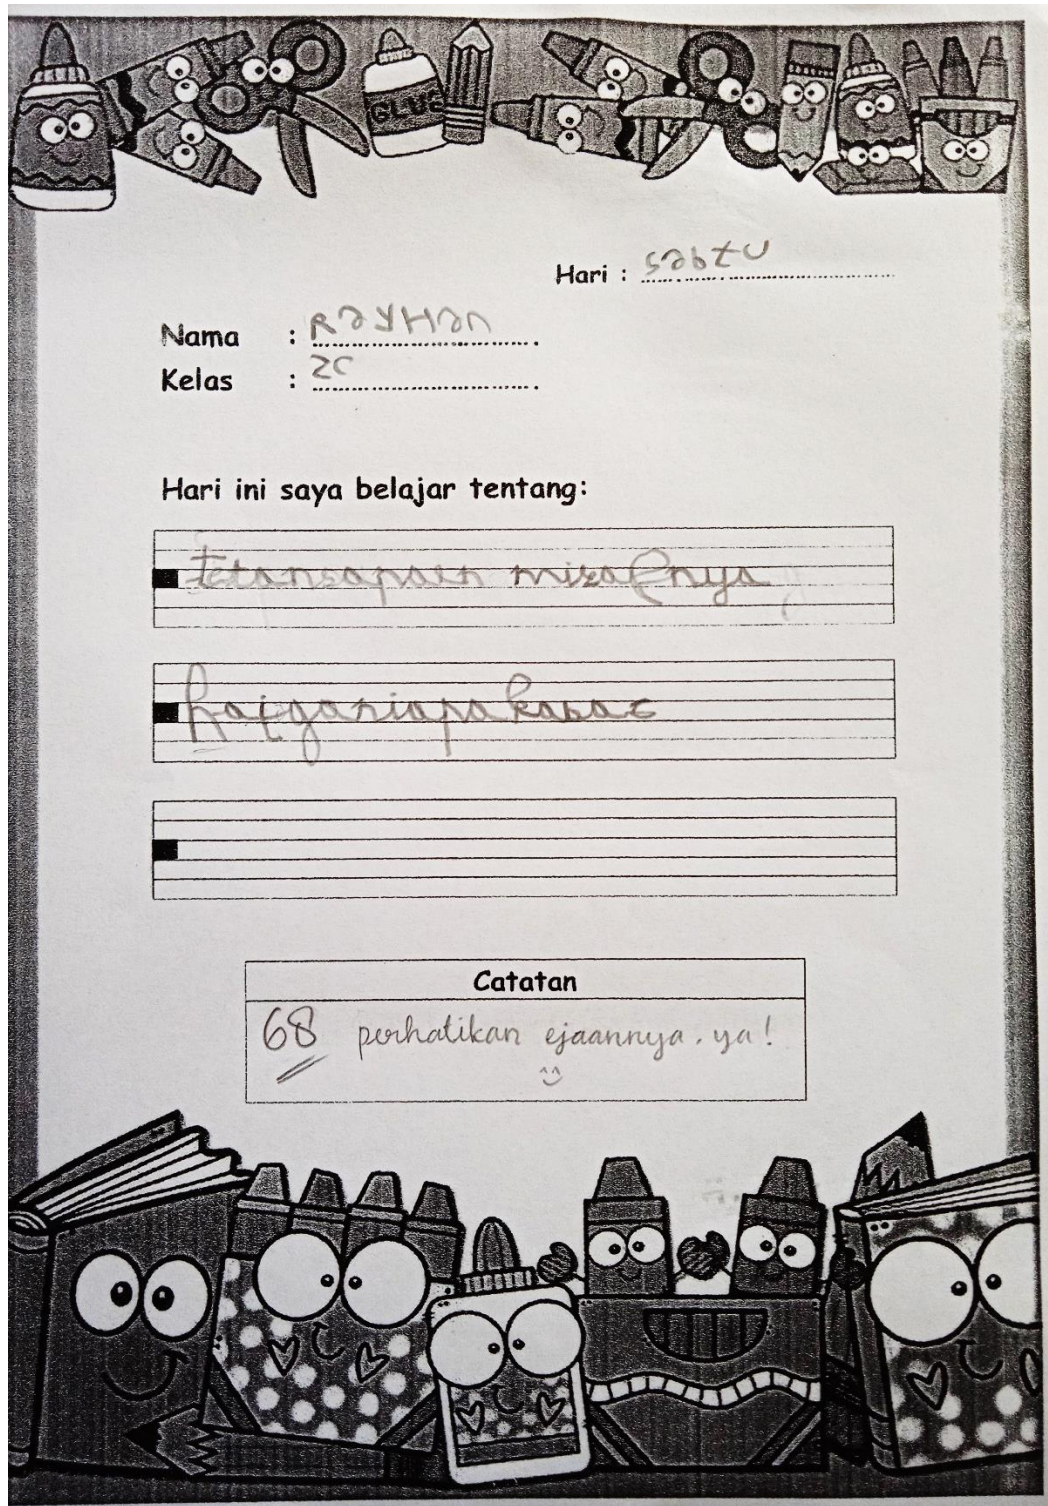 GLUE
Hari : sabtu
Nama : RayHan
Kelas : 2C
Hari ini saya belajar tentang:
tetansapaen misalnya
haiganiapakabar
Catatan
68 perhatikan ejaannya, ya!